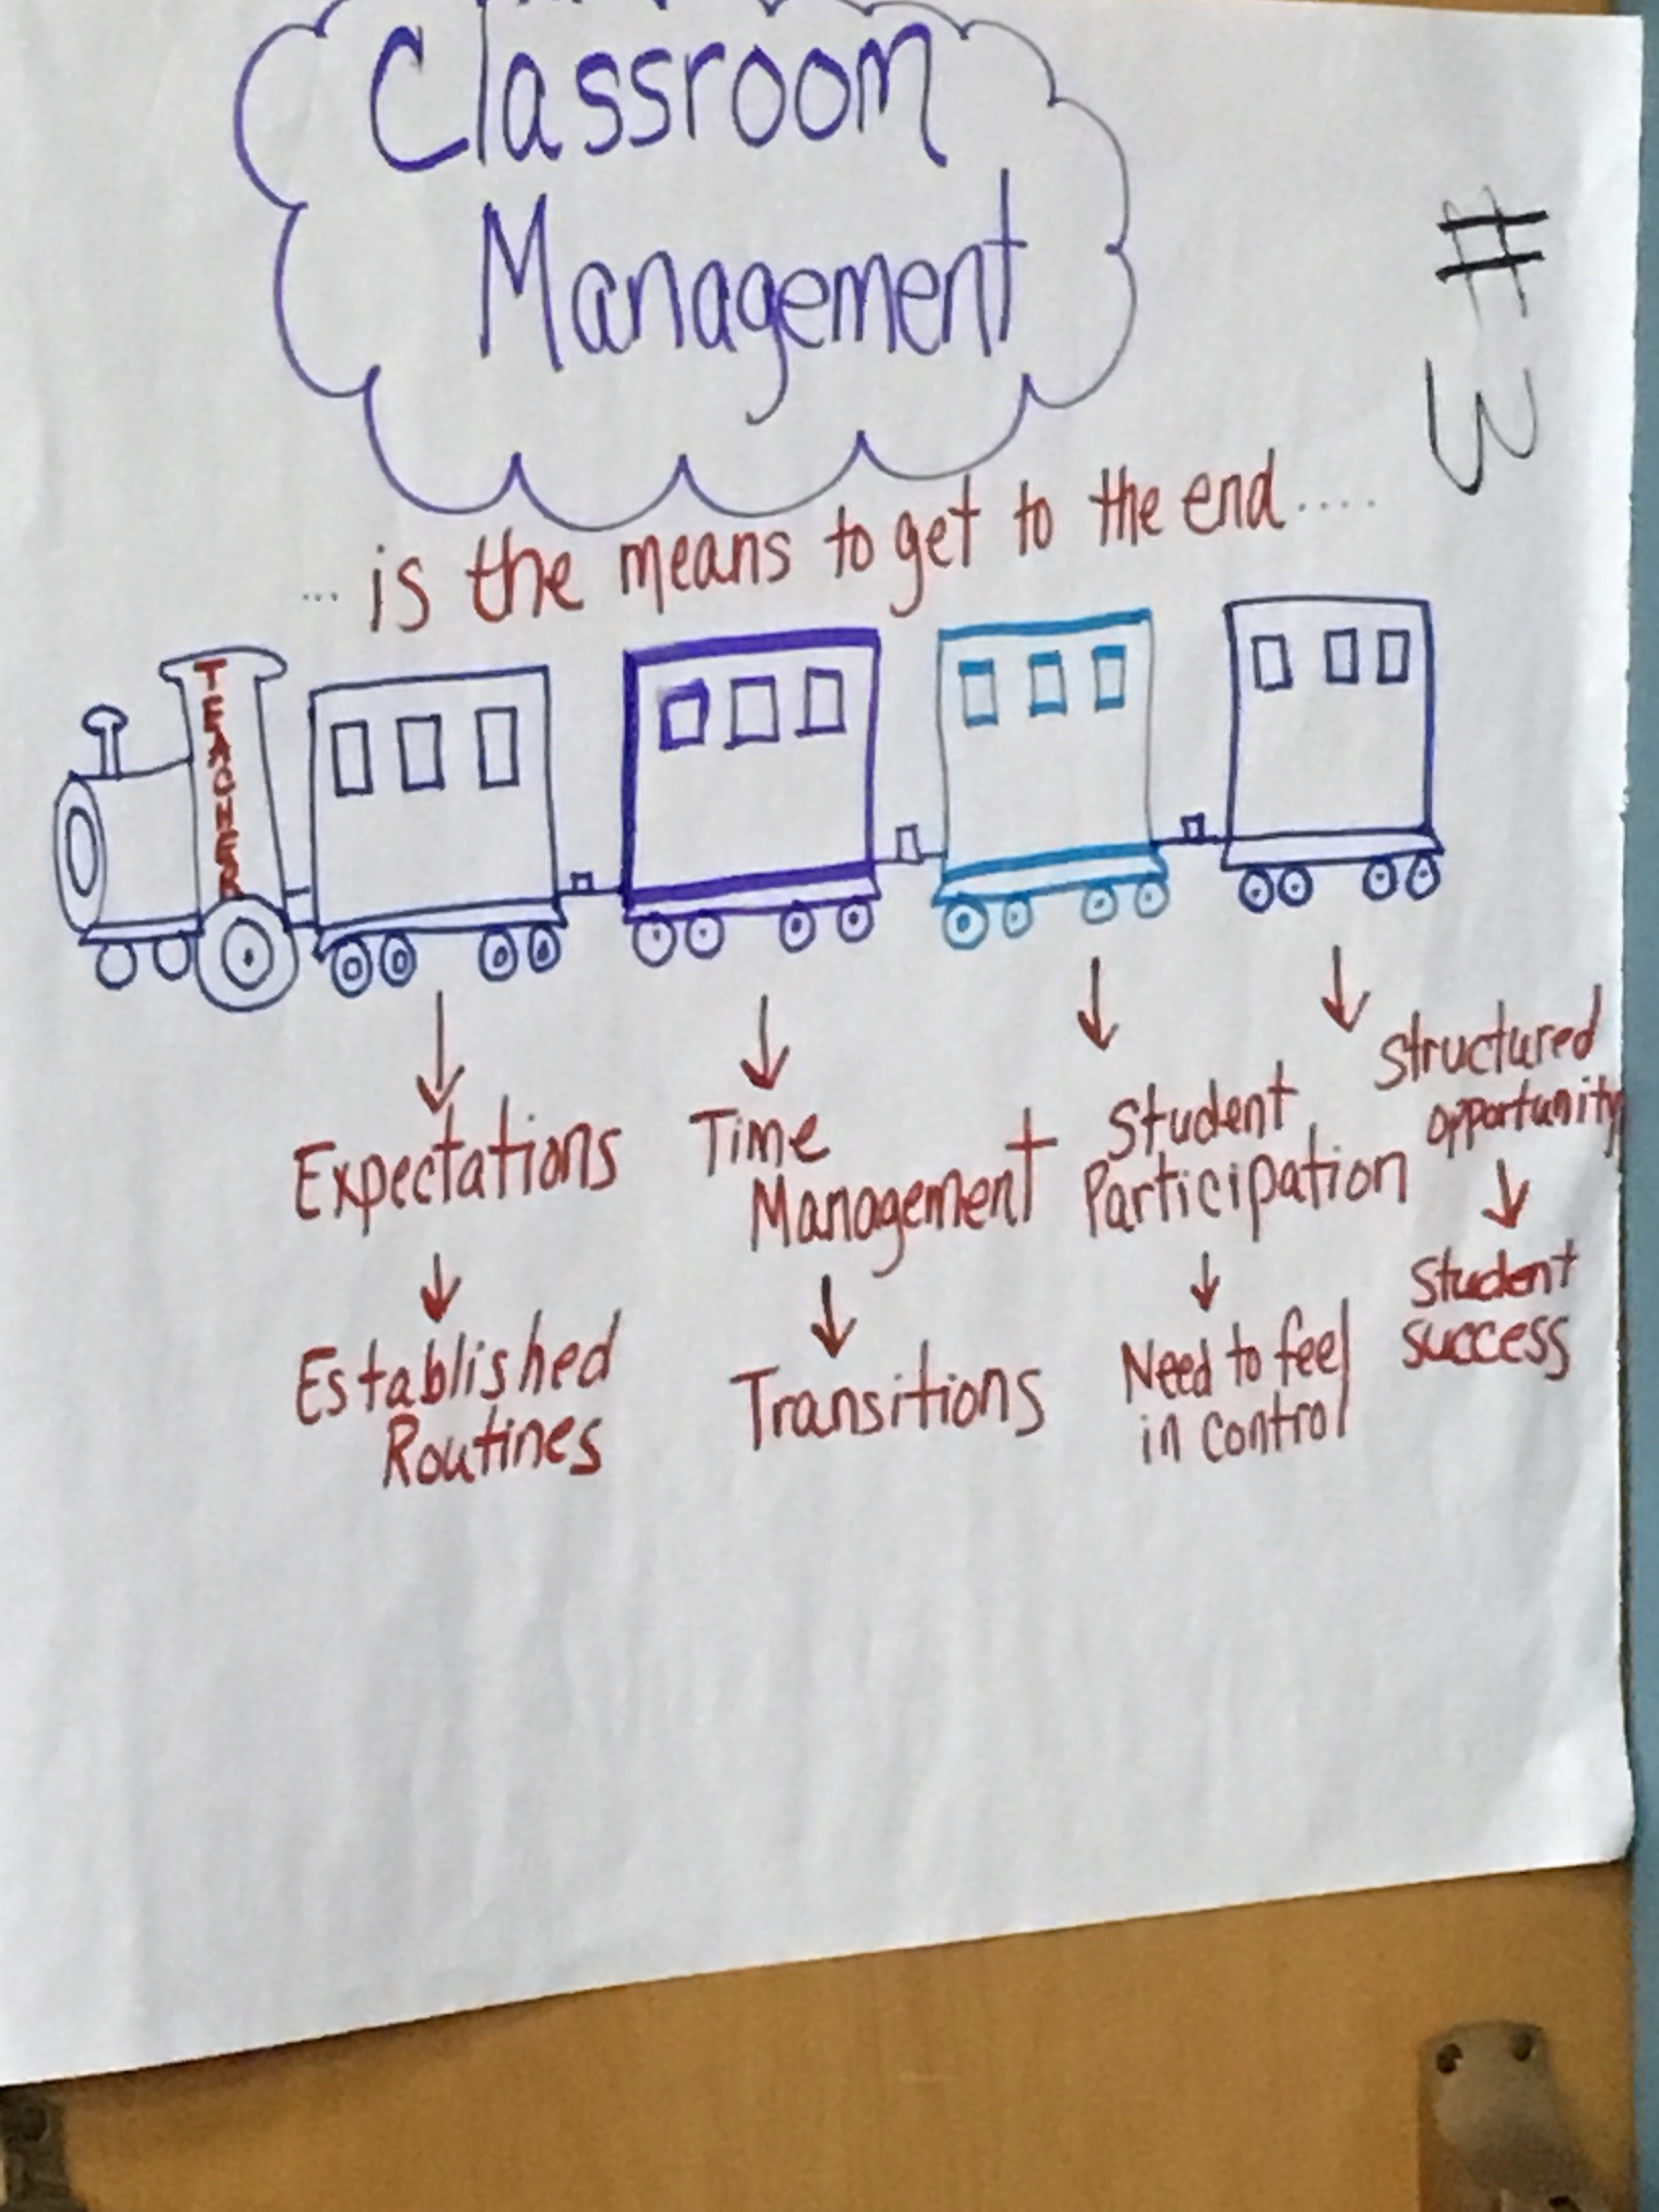 Classroom
Management
#3
... is the means to get to the end.....
TEACHER
Expectations
Established
Routines
Time
Management
Transitions
Student
Participation
Need to feel
in control
Structured
opportunity
Student
success